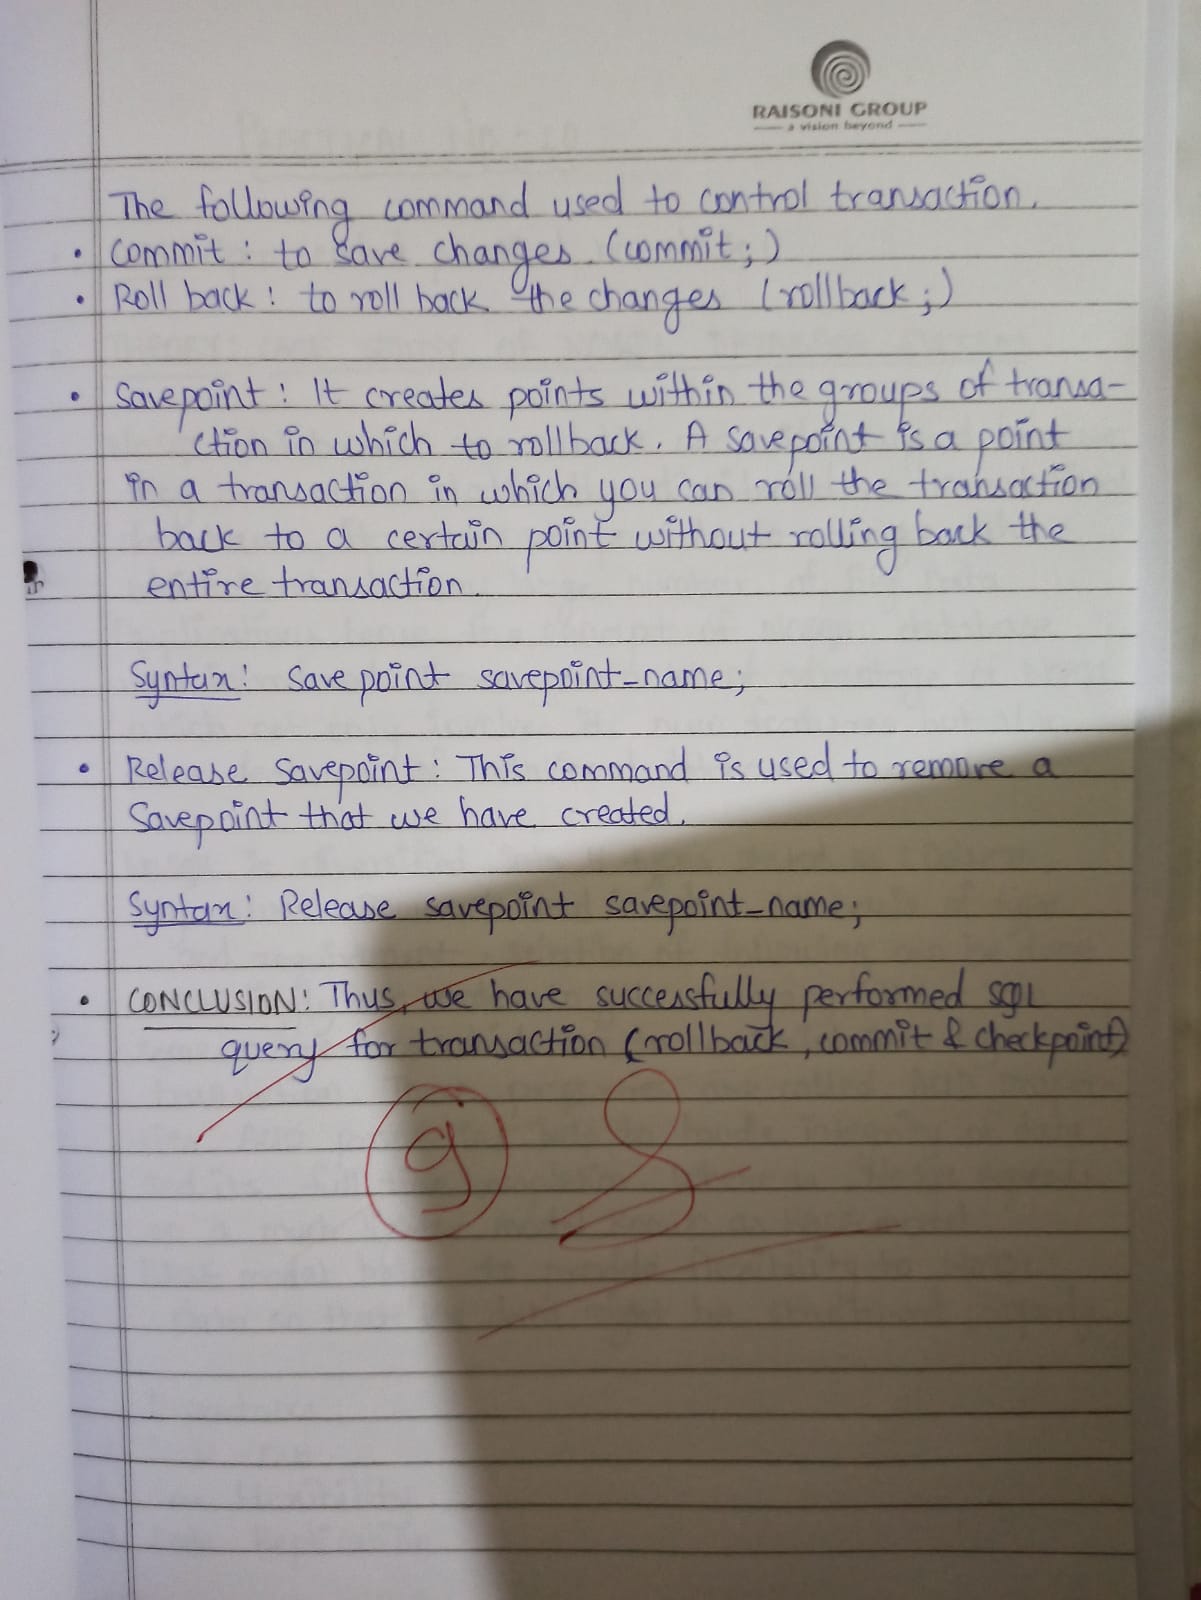 RAISONI GROUP
a vision beyond
The following command used to control transaction.
• Commit : to save changes. (commit ; )
• Roll back : to roll back the changes (rollback ; )
• Savepoint : It creates points within the groups of transa-
ction in which to rollback. A savepoint is a point
in a transaction in which you can roll the transaction
back to a certain point without rolling back the
entire transaction.
Syntax : Save point savepoint-name;
• Release Savepoint : This command is used to remove a
Savepoint that we have created.
Syntax : Release savepoint savepoint-name;
• CONCLUSION : Thus, we have successfully performed SQL
query for transaction (rollback, commit & checkpoint)
9